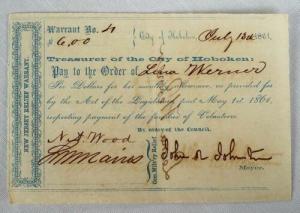 Warrant No. 41
$6.00
City of Hoboken, July 1861
Treasurer of the City of Hoboken:
Pay to the Order of Lena Werner
Six Dollars for her monthly allowance, as provided for
by the Act of the Legislature passed May 1st 1861,
respecting payment of the families of Volunteers
By order of the Council,
N. A. Wood
John R. Johnston
Mayor.
NEW JERSEY RELIEF WARRANT.